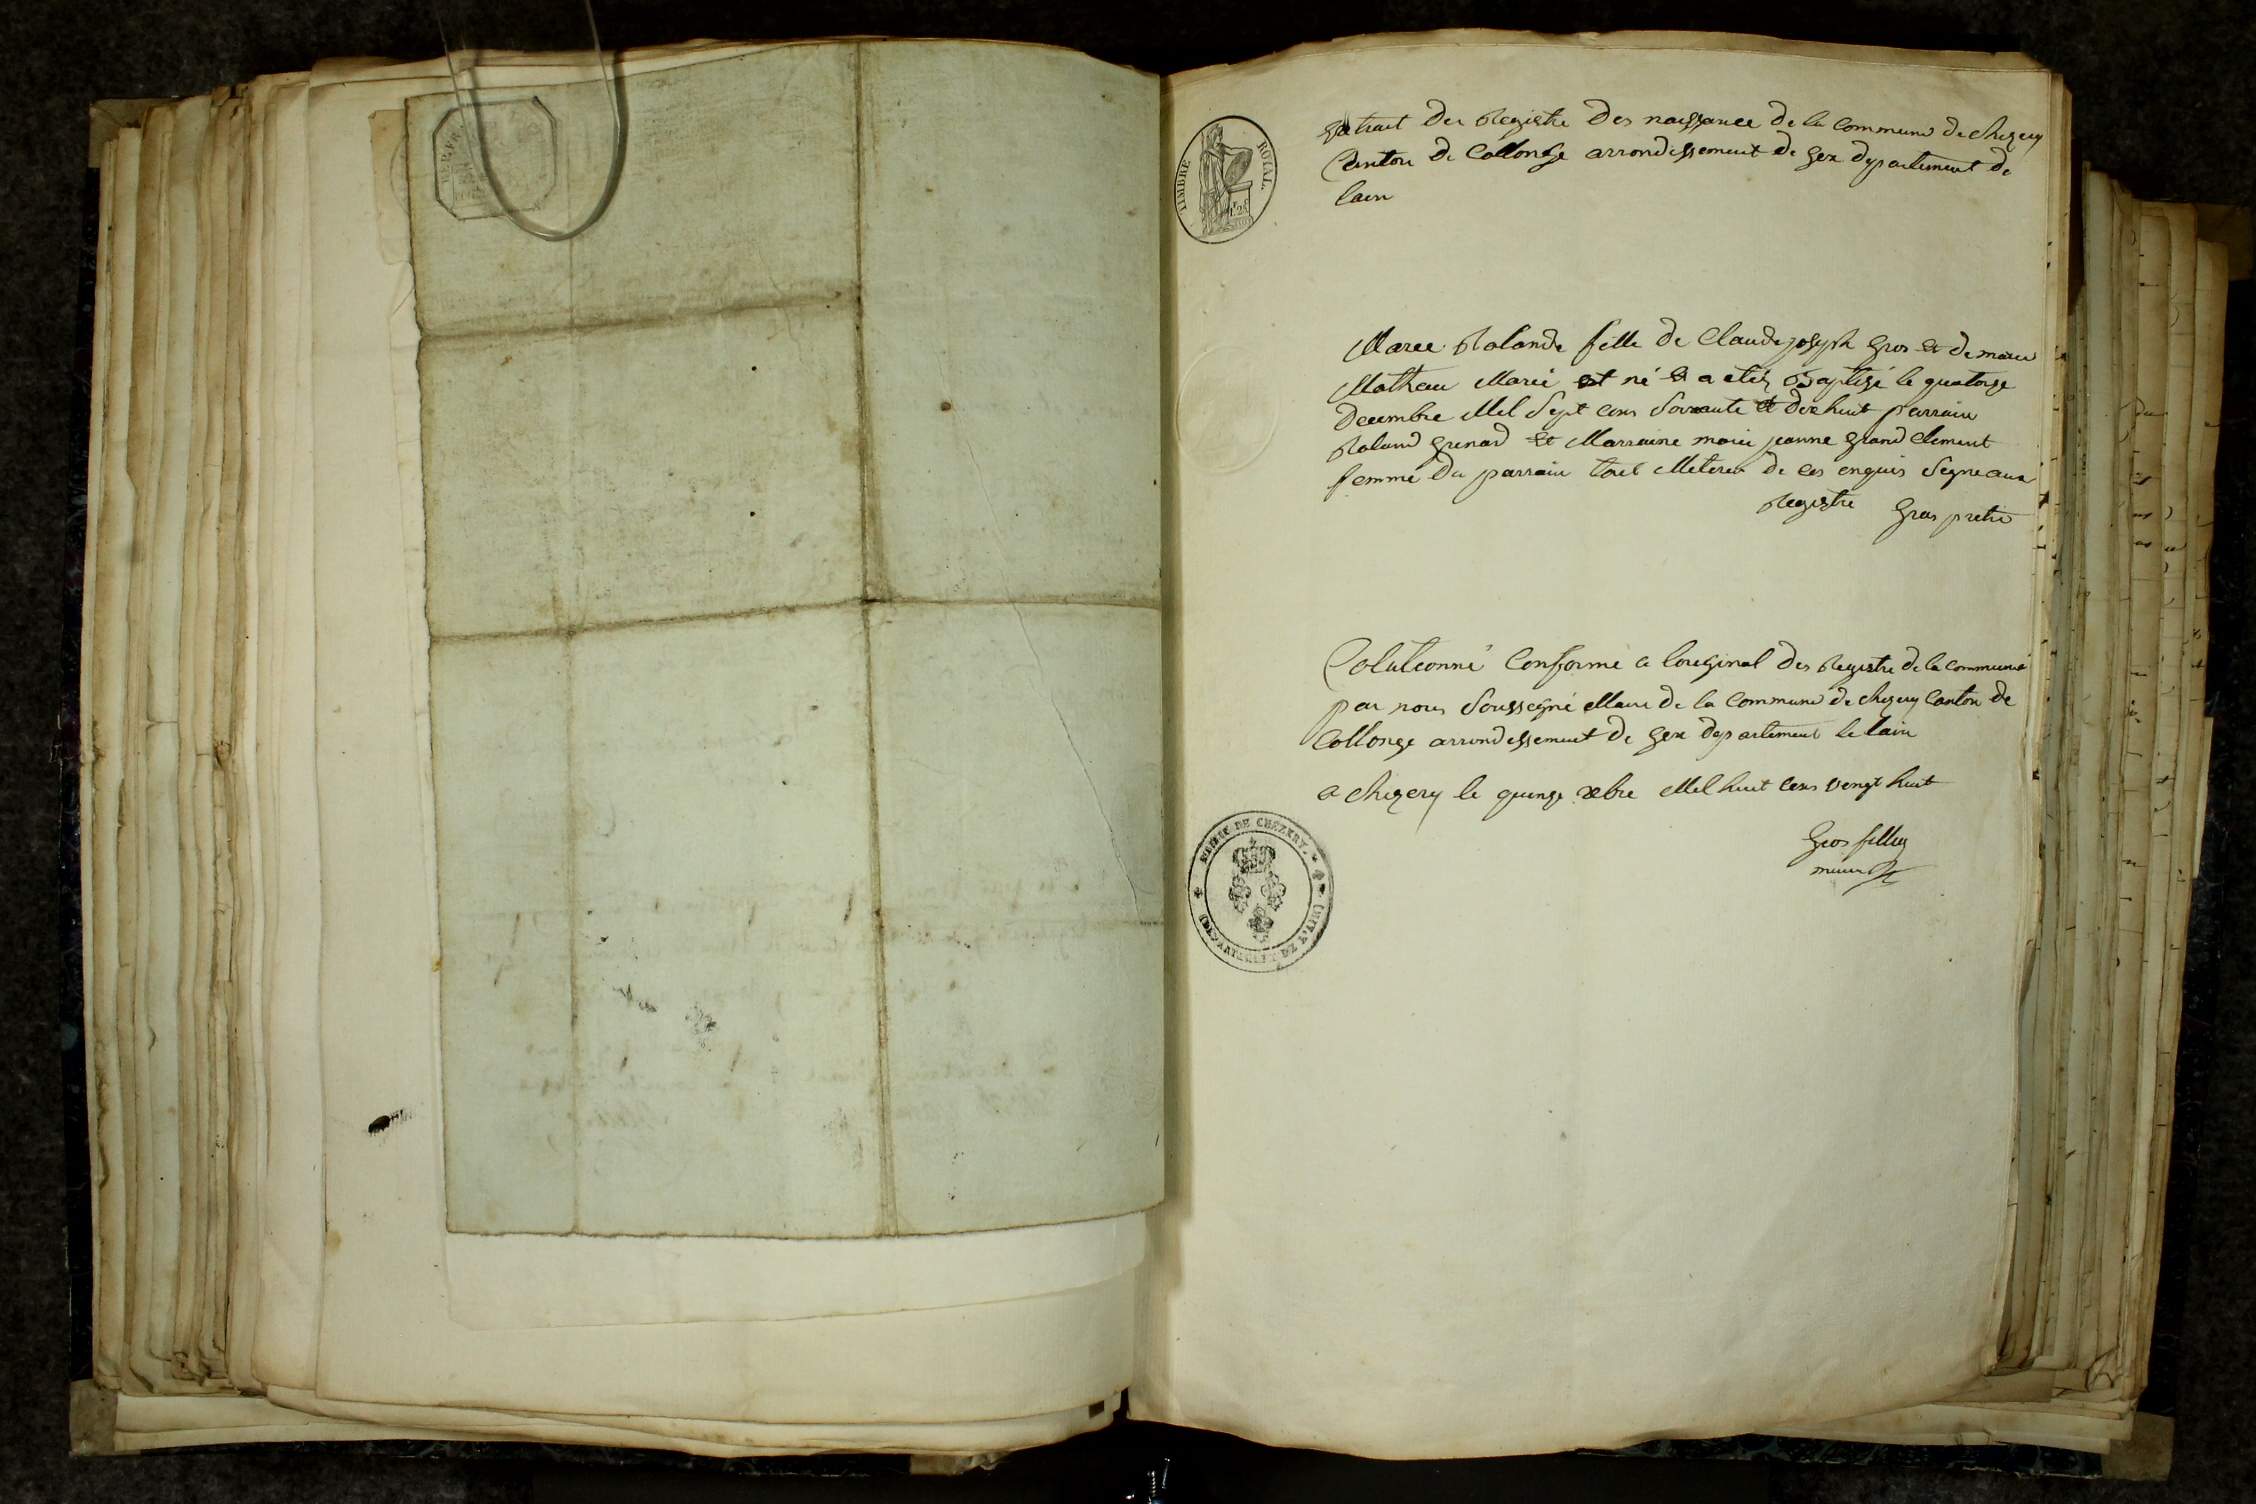 TIMBRE ROYAL.
Extrait des Registre Des naissance De la Commune De chezery
Canton De Collonge arrondissement de Gex departement De
lain
Marie Rolande fille De Claude joseph Gros et De marie
Mathieu Marié est né et a etéz Baptizé le quatorze
Decembre Mil Sept cens Soixante et Dix huit parrain
Roland Grenard et Marraine marie jeanne Grand Clement
femme Du parrain tous de ces enquis Segne aux
Registre Gros pretre
Colationné Conforme a loreginal Des Registre De la commune
par nous Soussegné Maire De la Commune De chezery Canton de
Collonge arrondissement De Gex Departement le lain
a chezery le quinze xbre Mil huit cens vengt huit
Gros filley
maire
MAIRIE DE CHÉZERY.